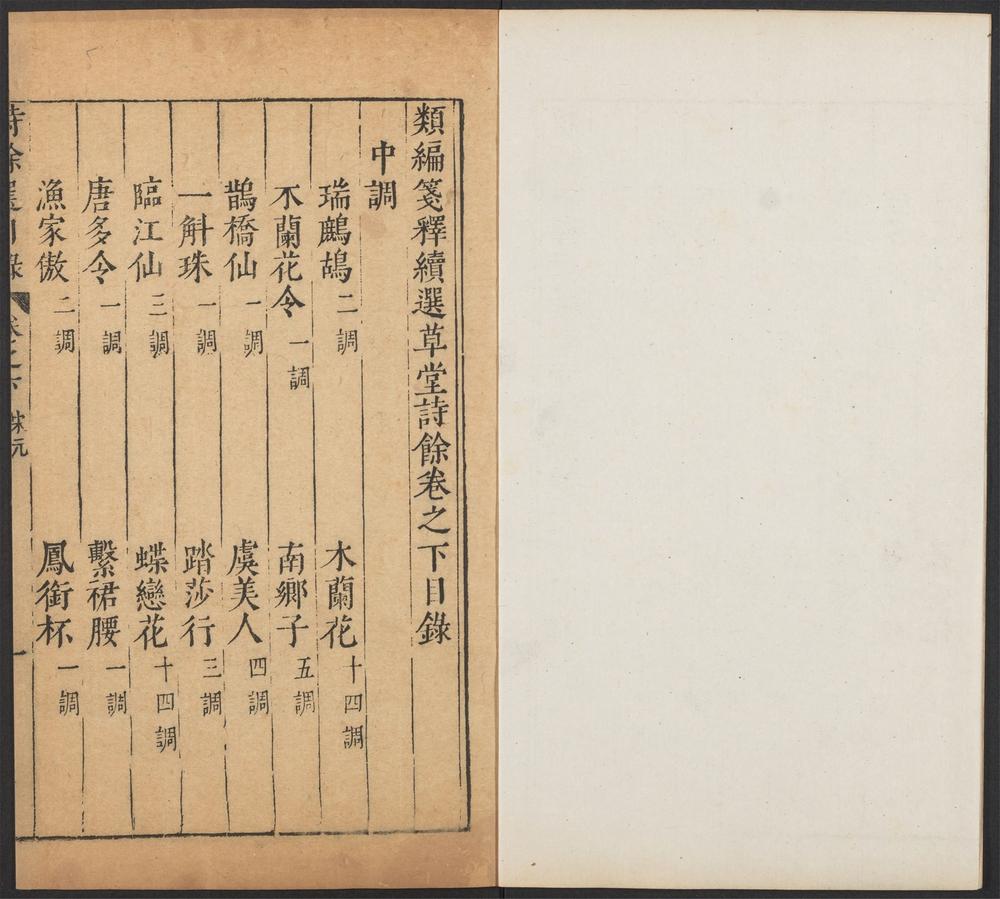 類編箋釋續選草堂詩餘卷之下目錄
中調
瑞鷓鴣 二調 木蘭花 十四調
木蘭花令 一調 南鄉子 五調
鵲橋仙 一調 虞美人 四調
一斛珠 一調 踏莎行 三調
臨江仙 三調 蝶戀花 十四調
唐多令 一調 繫裙腰 一調
漁家傲 二調 鳳銜杯 一調
詩餘選目錄 卷之下 一